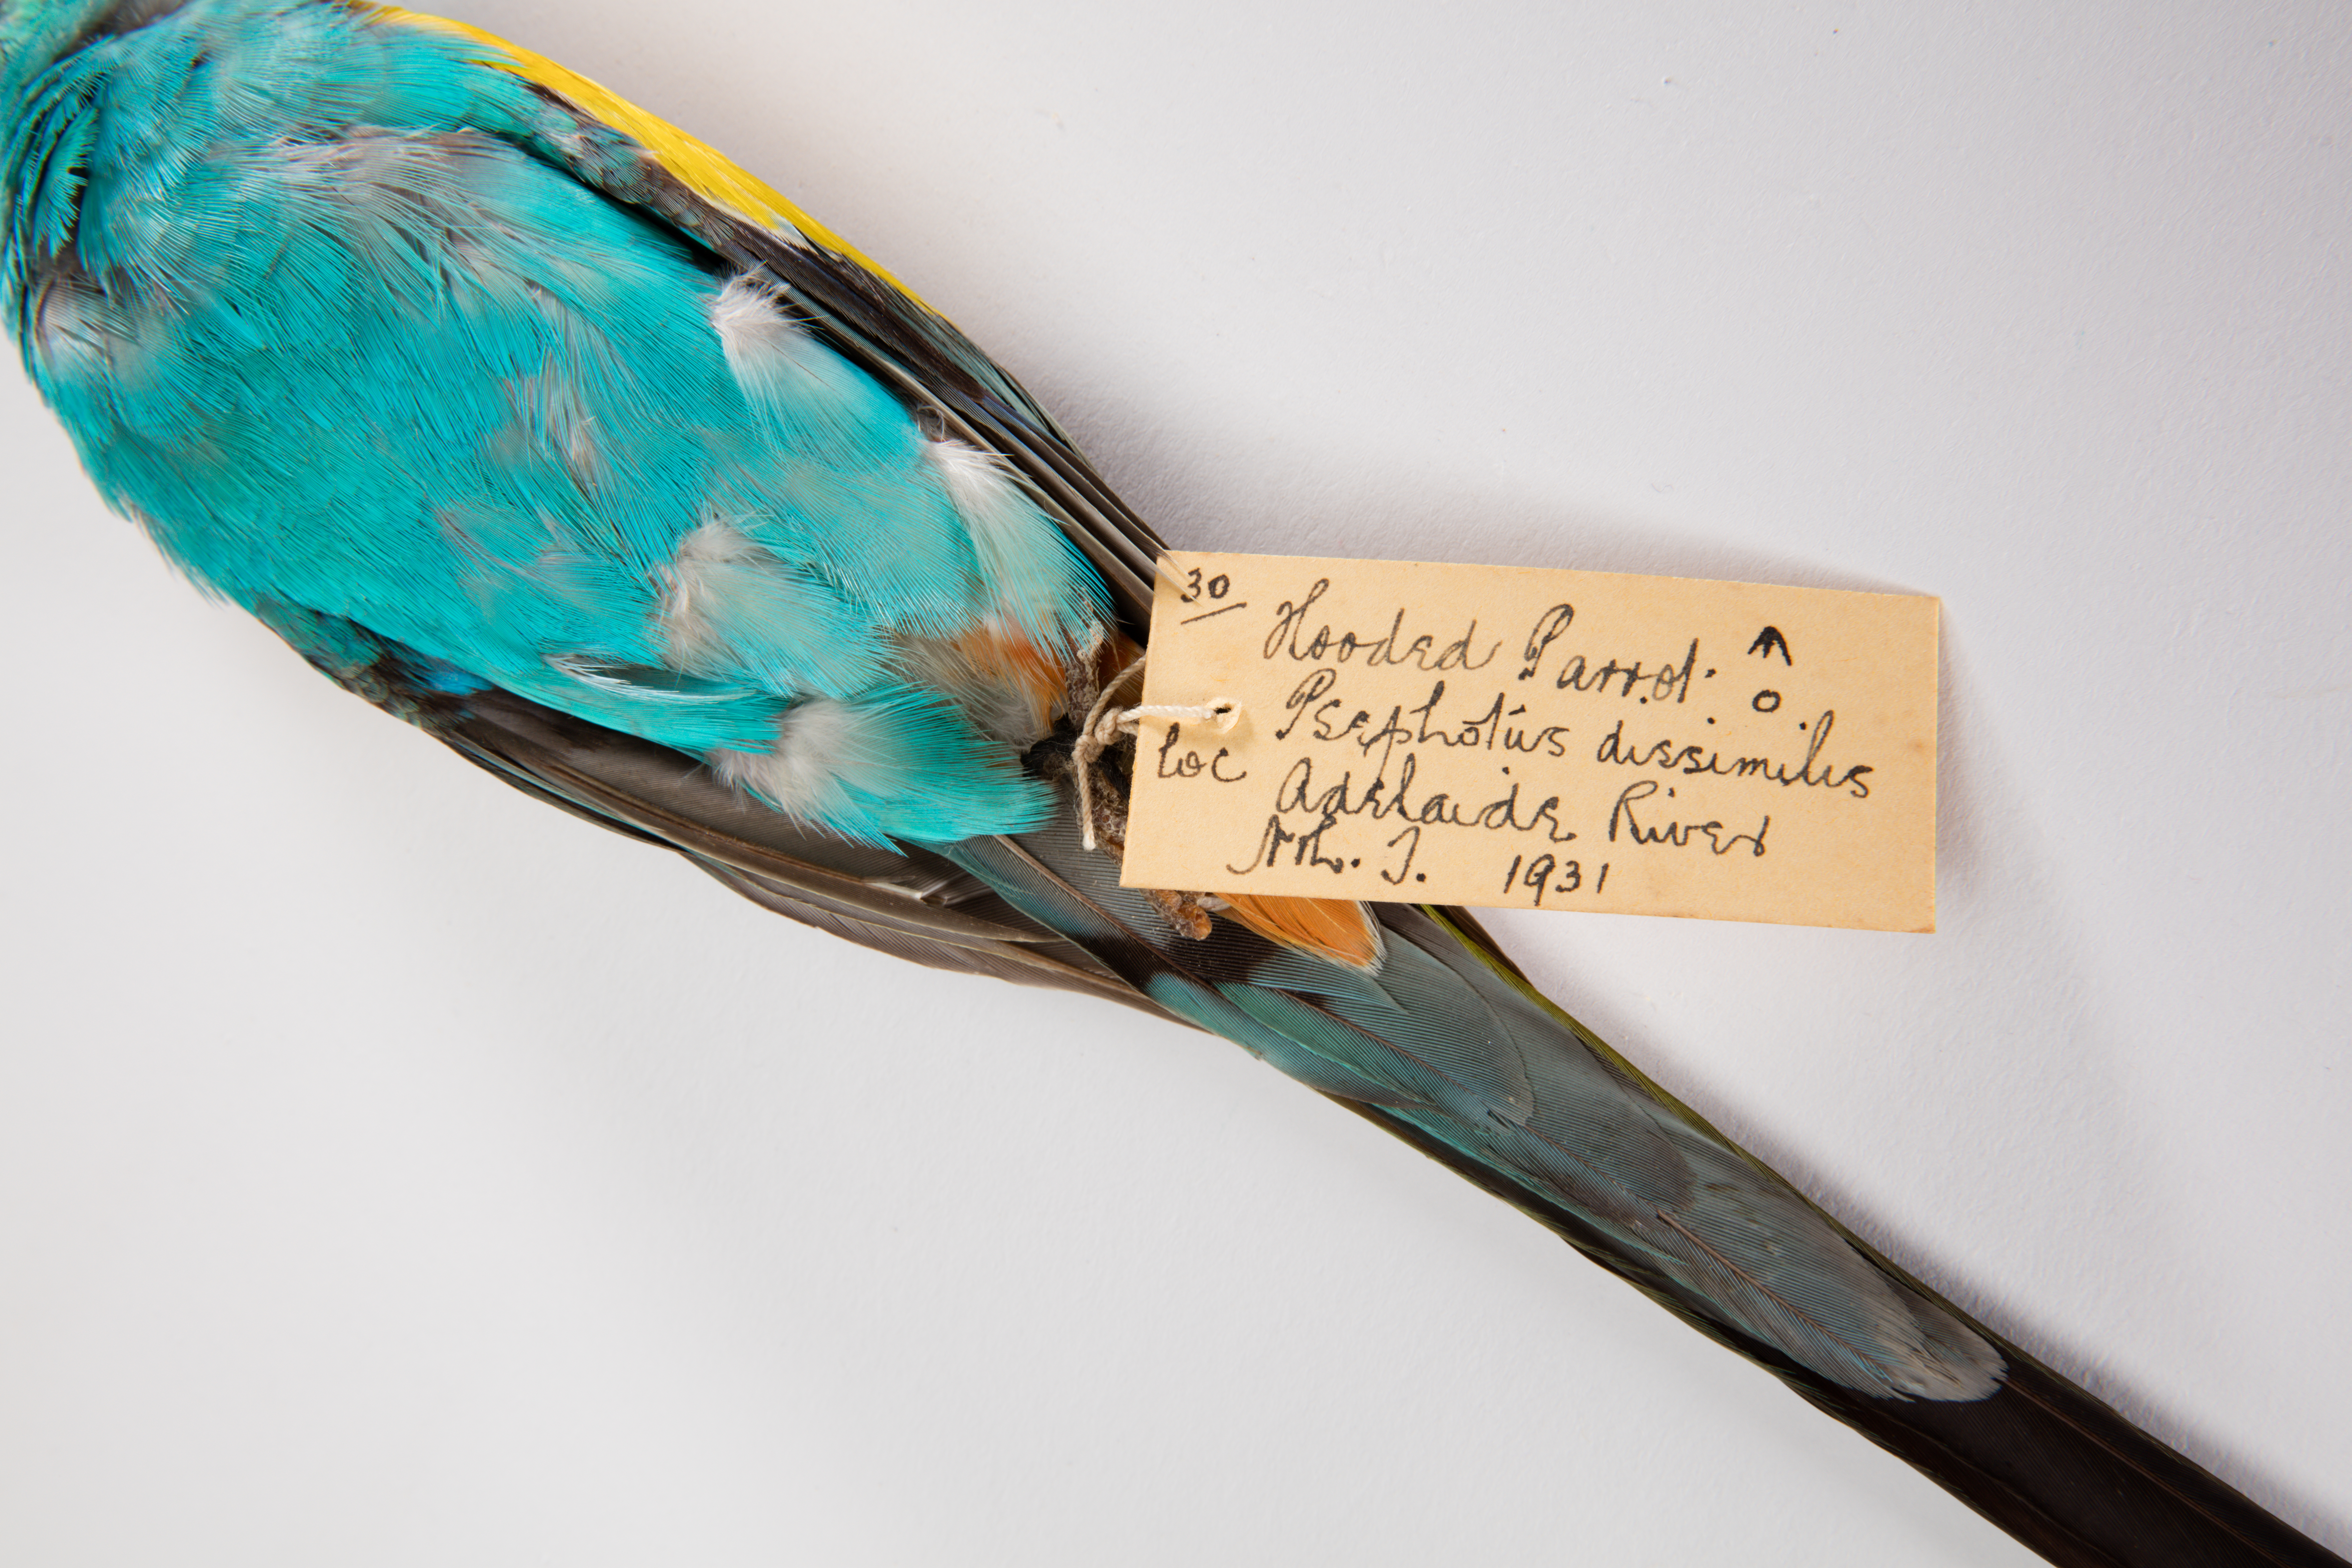 30
Hooded Parrot. ♂
Psephotus dissimilis
Loc Adelaide River
Nth. T. 1931